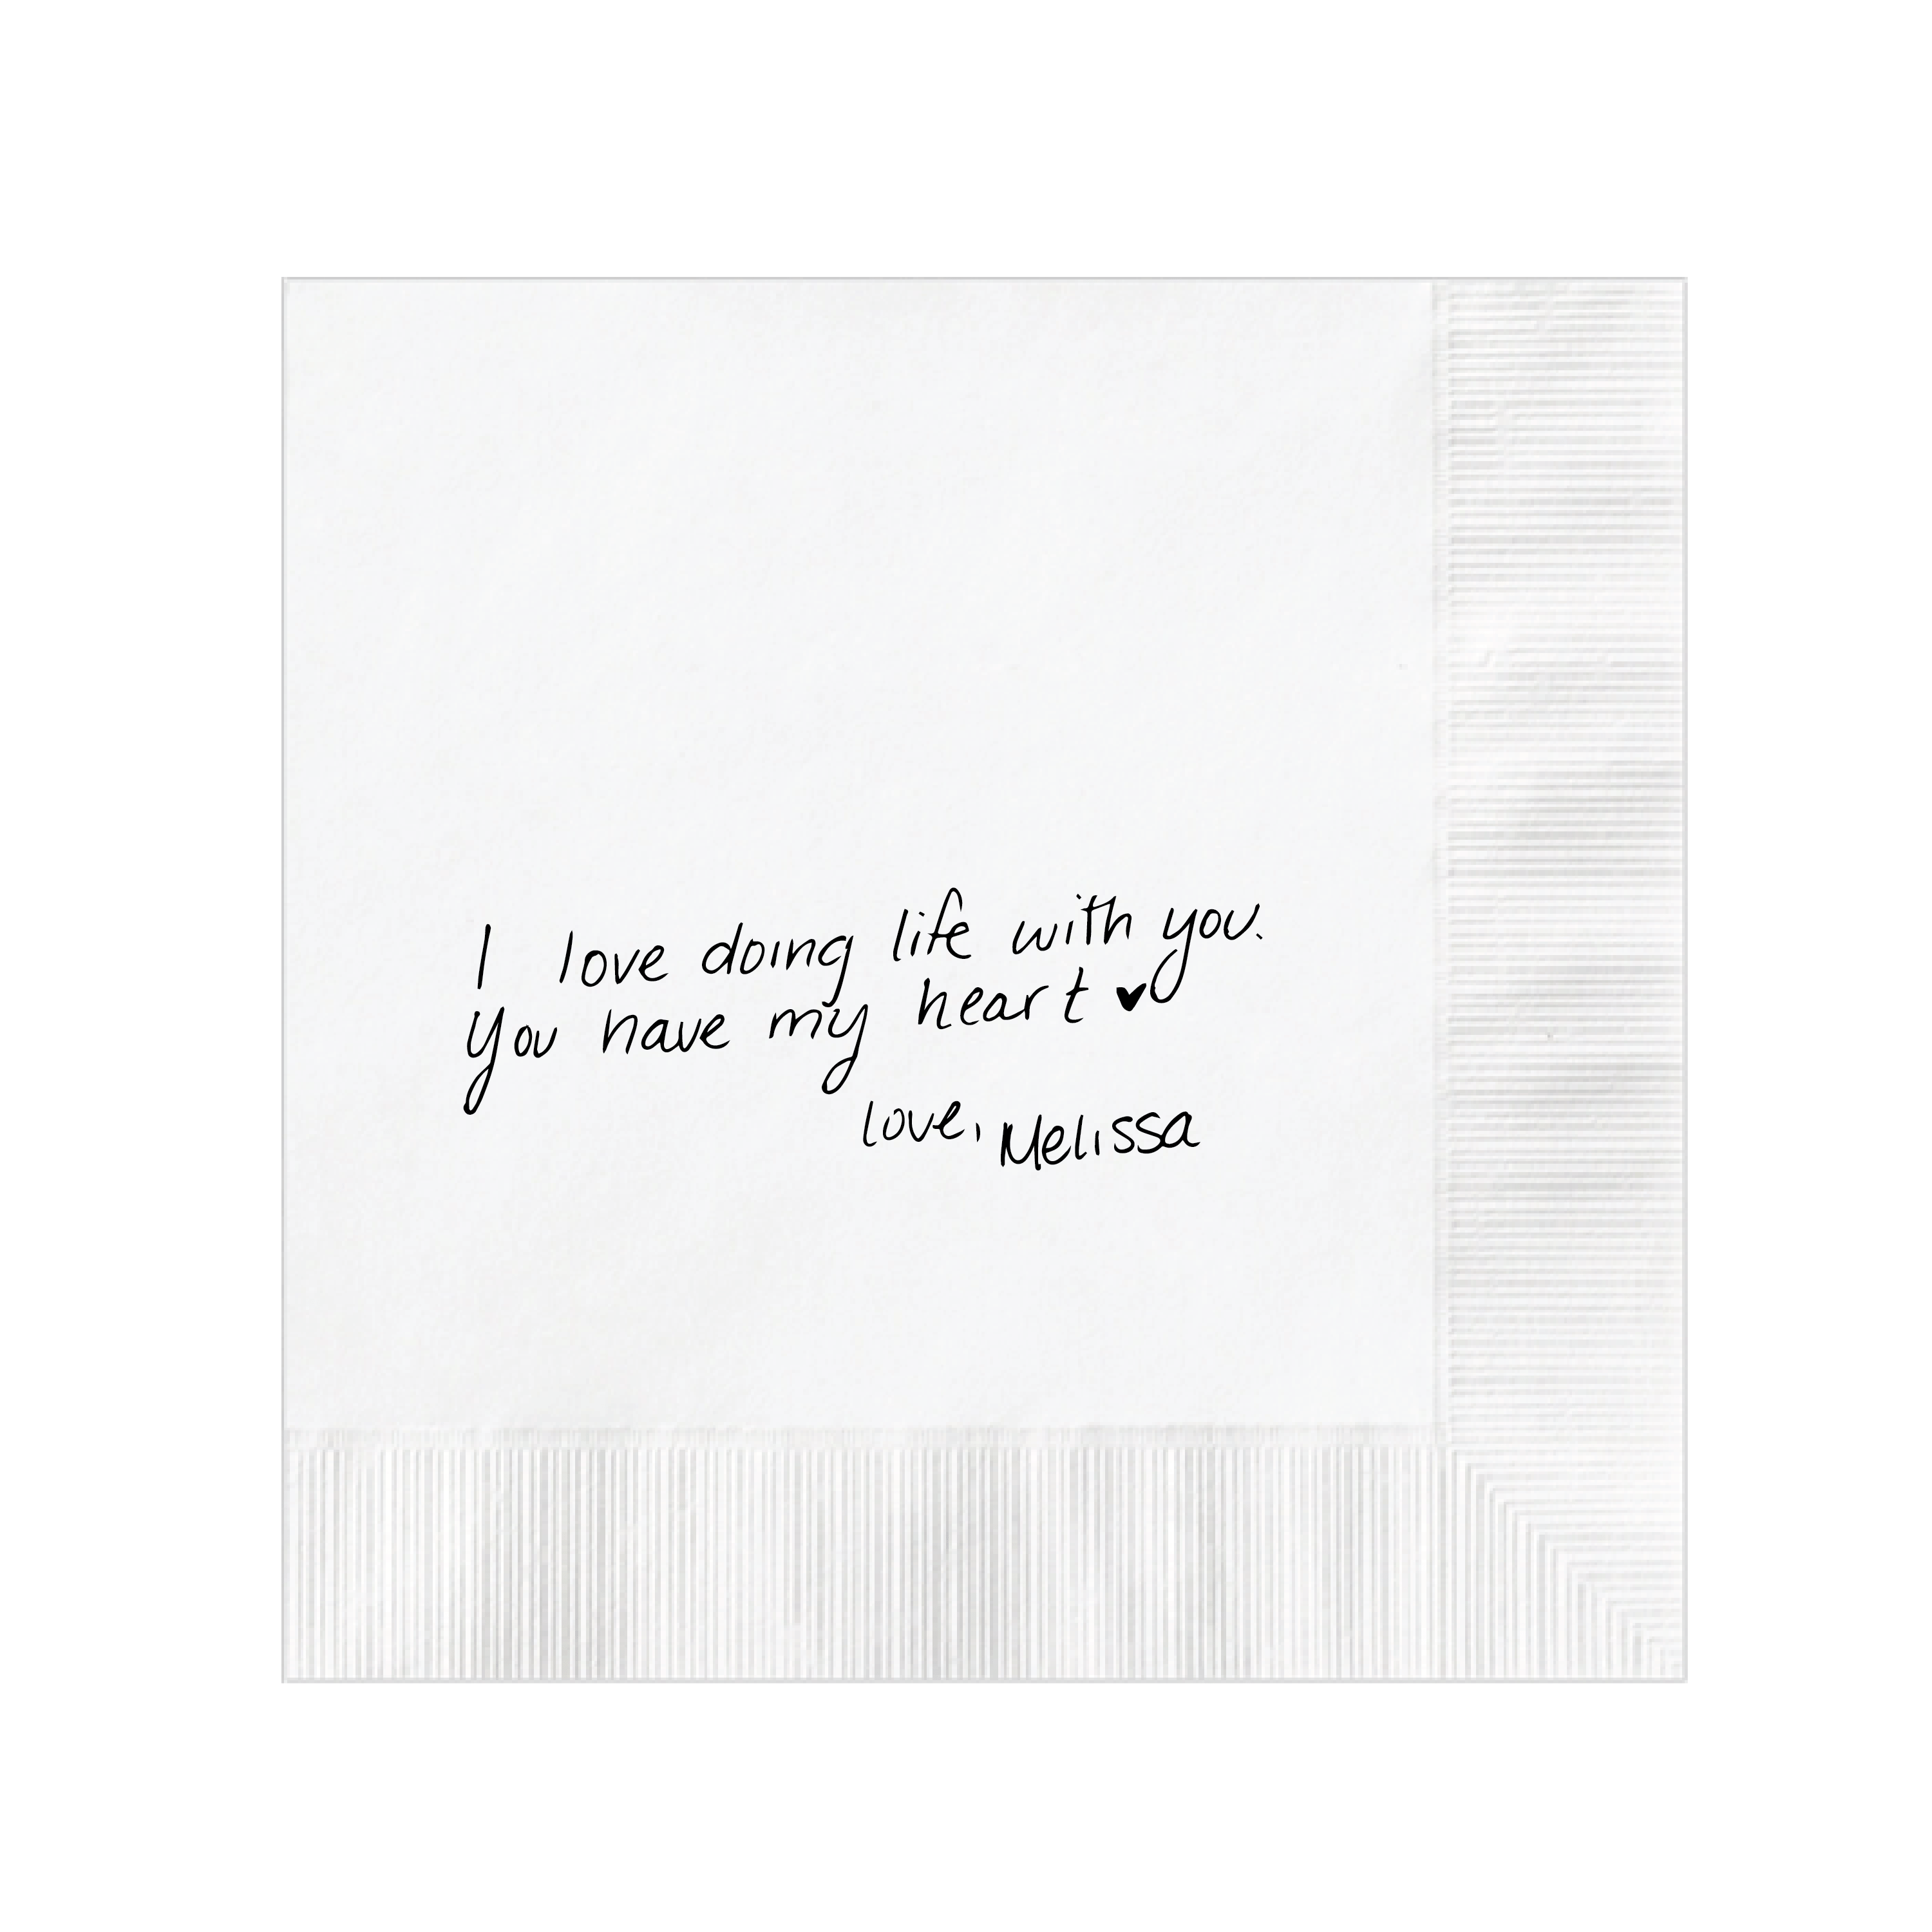 I love doing life with you.
you have my heart ♥
love, Melissa